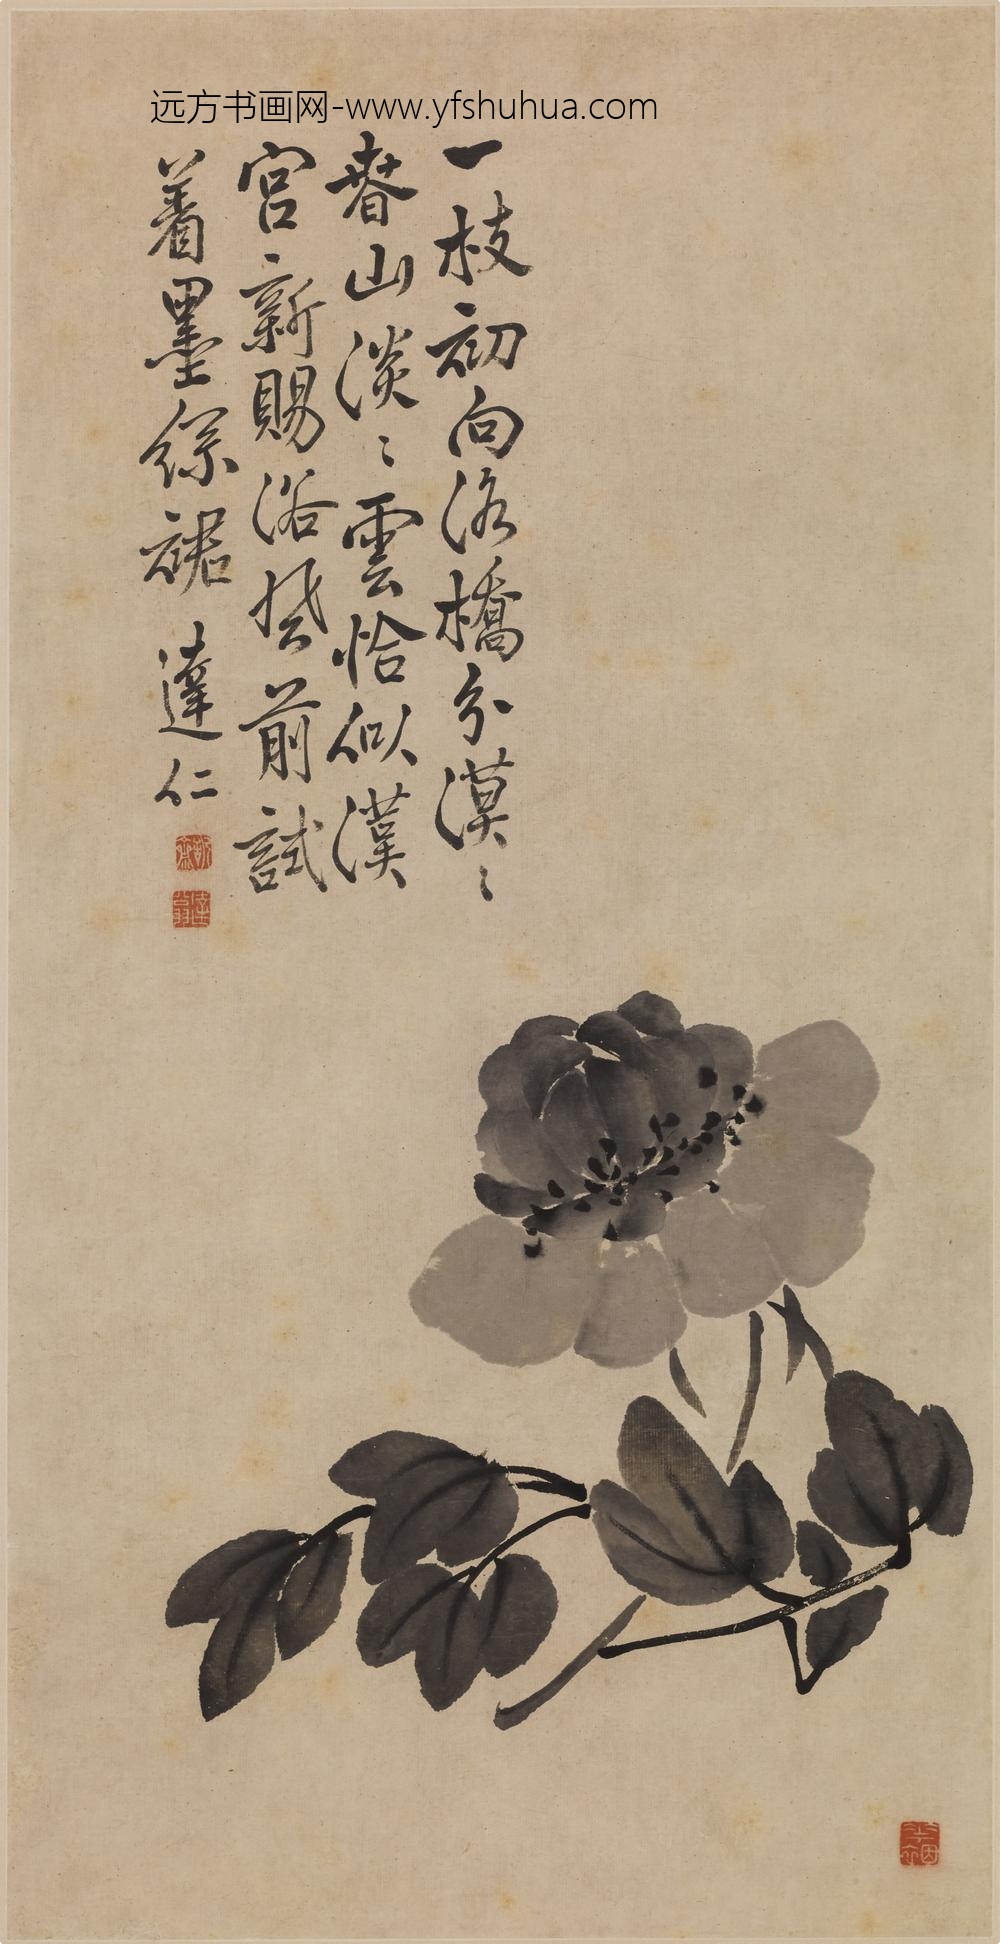 远方书画网-www.yfshuhua.com
一枝初向洛橋分漠〻
春山淡〻雲恰似漢
宮新賜浴風前試
着墨綠裙 達仁